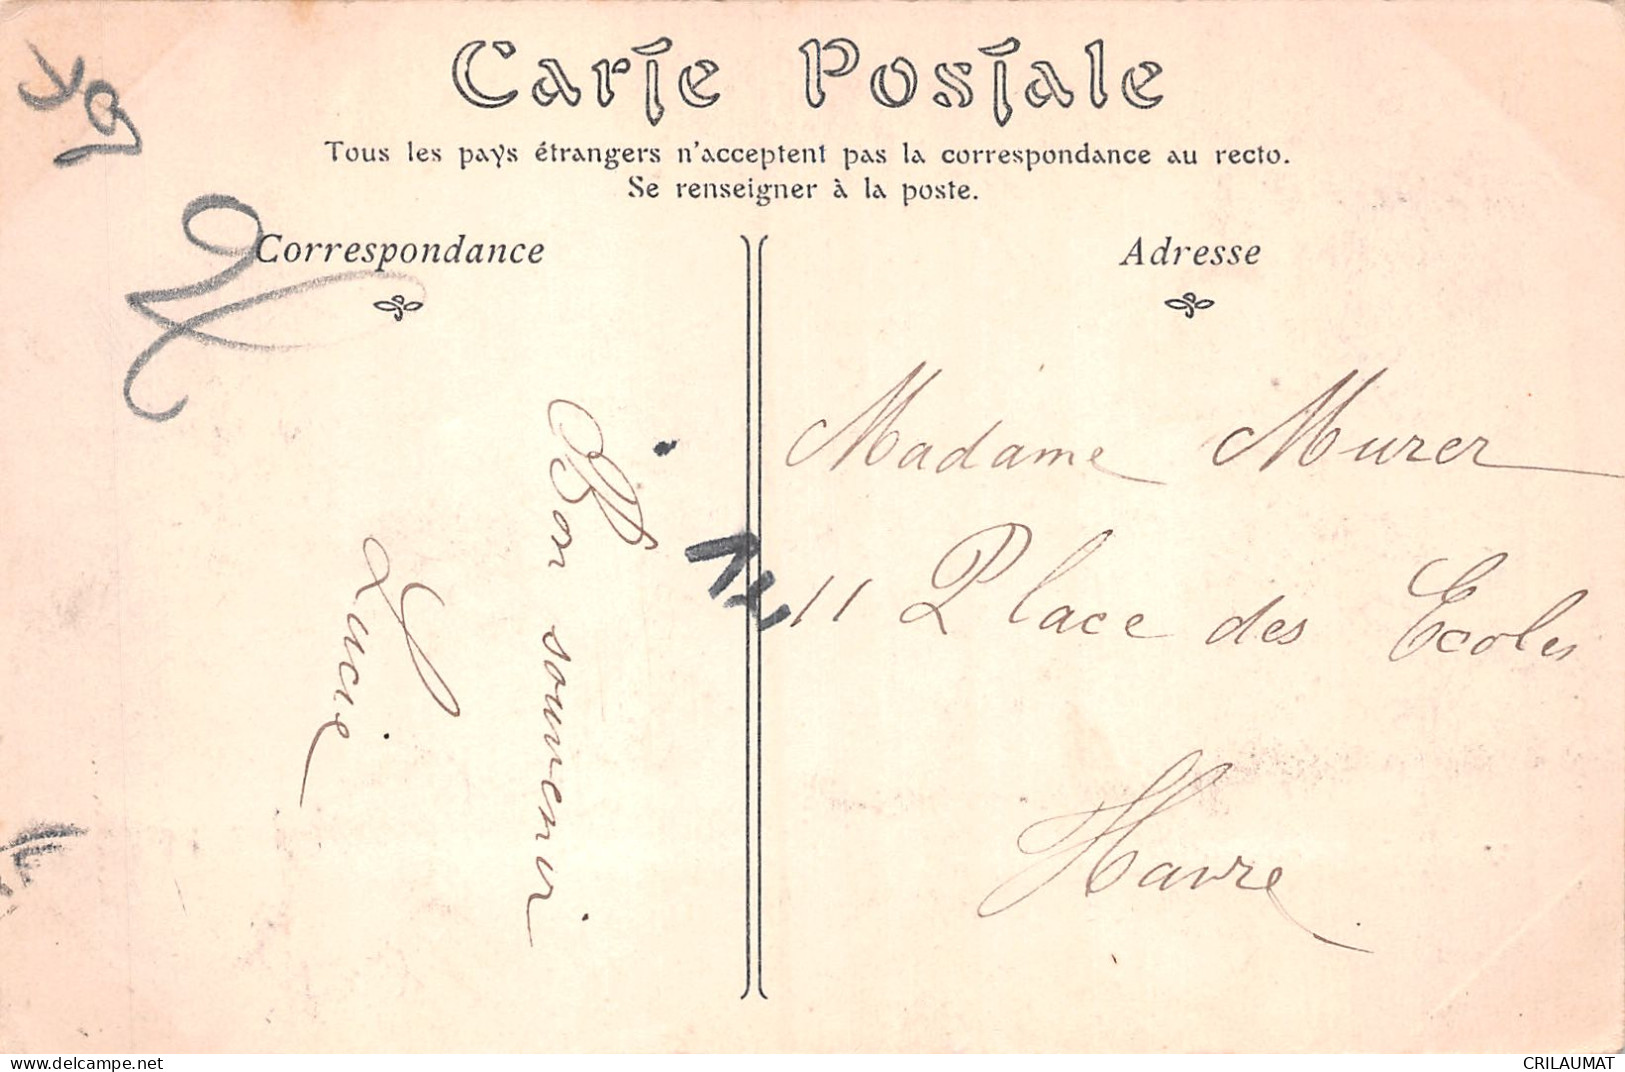 Carte Postale
Tous les pays étrangers n'acceptent pas la correspondance au recto.
Se renseigner à la poste.
Correspondance
Adresse
Bon souvenir
Lucie
Madame Murer
11 Place des Ecoles
Havre
website: www.delcampe.net
CRILAUMAT